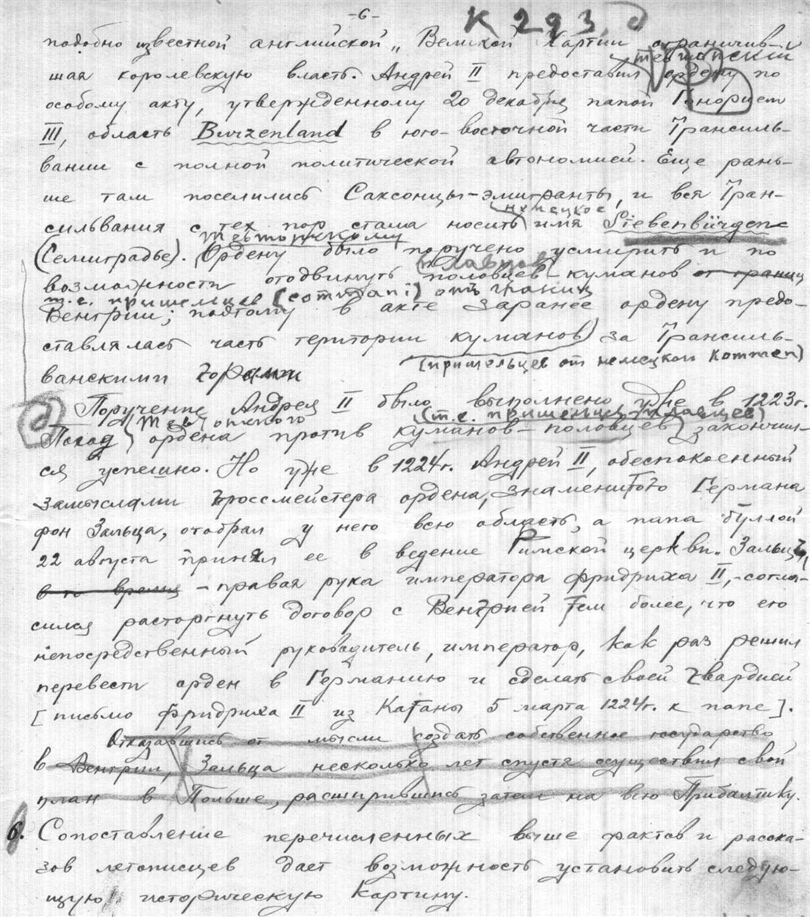 -6-
К 293 д
подобно известной английской „Великой Хартии ограничив-
шая королевскую власть. Андрей II предоставил ордену по
тевтонский
особому акту, утвержденному 20 декабря папой Гонорием
III, область Burzenland в юго-восточной части Трансиль-
вании с полной политической автономией. Еще рань-
ше там поселились Саксонцы-эмигранты, и вся Тран-
сильвания с тех пор стала носить имя Siebenbürgen
немецкое
(Семиградье). Ордену было поручено усмирить и по
тевтонскому
возможности отодвинуть половцев-куманов от границ
плавцов
т.е. пришельцев (commani) от границ
Венгрии; поэтому в акте заранее ордену предо-
ставлялась часть територии куманов за Трансиль-
(пришельцев от немецкой kommen)
ванскими горами
д Поручение Андрея II было выполнено уже в 1223г.
Поход ордена против куманов-половцев закончил-
тевтонского
(т.е. пришельцев плавцев)
ся успешно. Но уже в 1224г. Андрей II, обеспокоенный
замыслами гроссмейстера ордена, знаменитого Германа
фон Зальца, отобрал у него всю область, а папа буллой
22 августа принял ее в ведение Римской церкви. Зальц,
в то время - правая рука императора Фридриха II, - согла-
сился расторгнуть договор с Венгрией тем более, что его
непосредственный руководитель, император, как раз решил
перевести орден в Германию и сделать своей гвардией
[письмо Фридриха II из Катаны 5 марта 1224г. к папе].
Отказавшись от мысли создать собственное государство
в Венгрии, Зальца несколько лет спустя осуществил свой
план в Польше, расширившись затем на всю Прибалтику.
6. Сопоставление перечисленных выше фактов и расска-
зов летописцев дает возможность установить следую-
щую историческую картину.